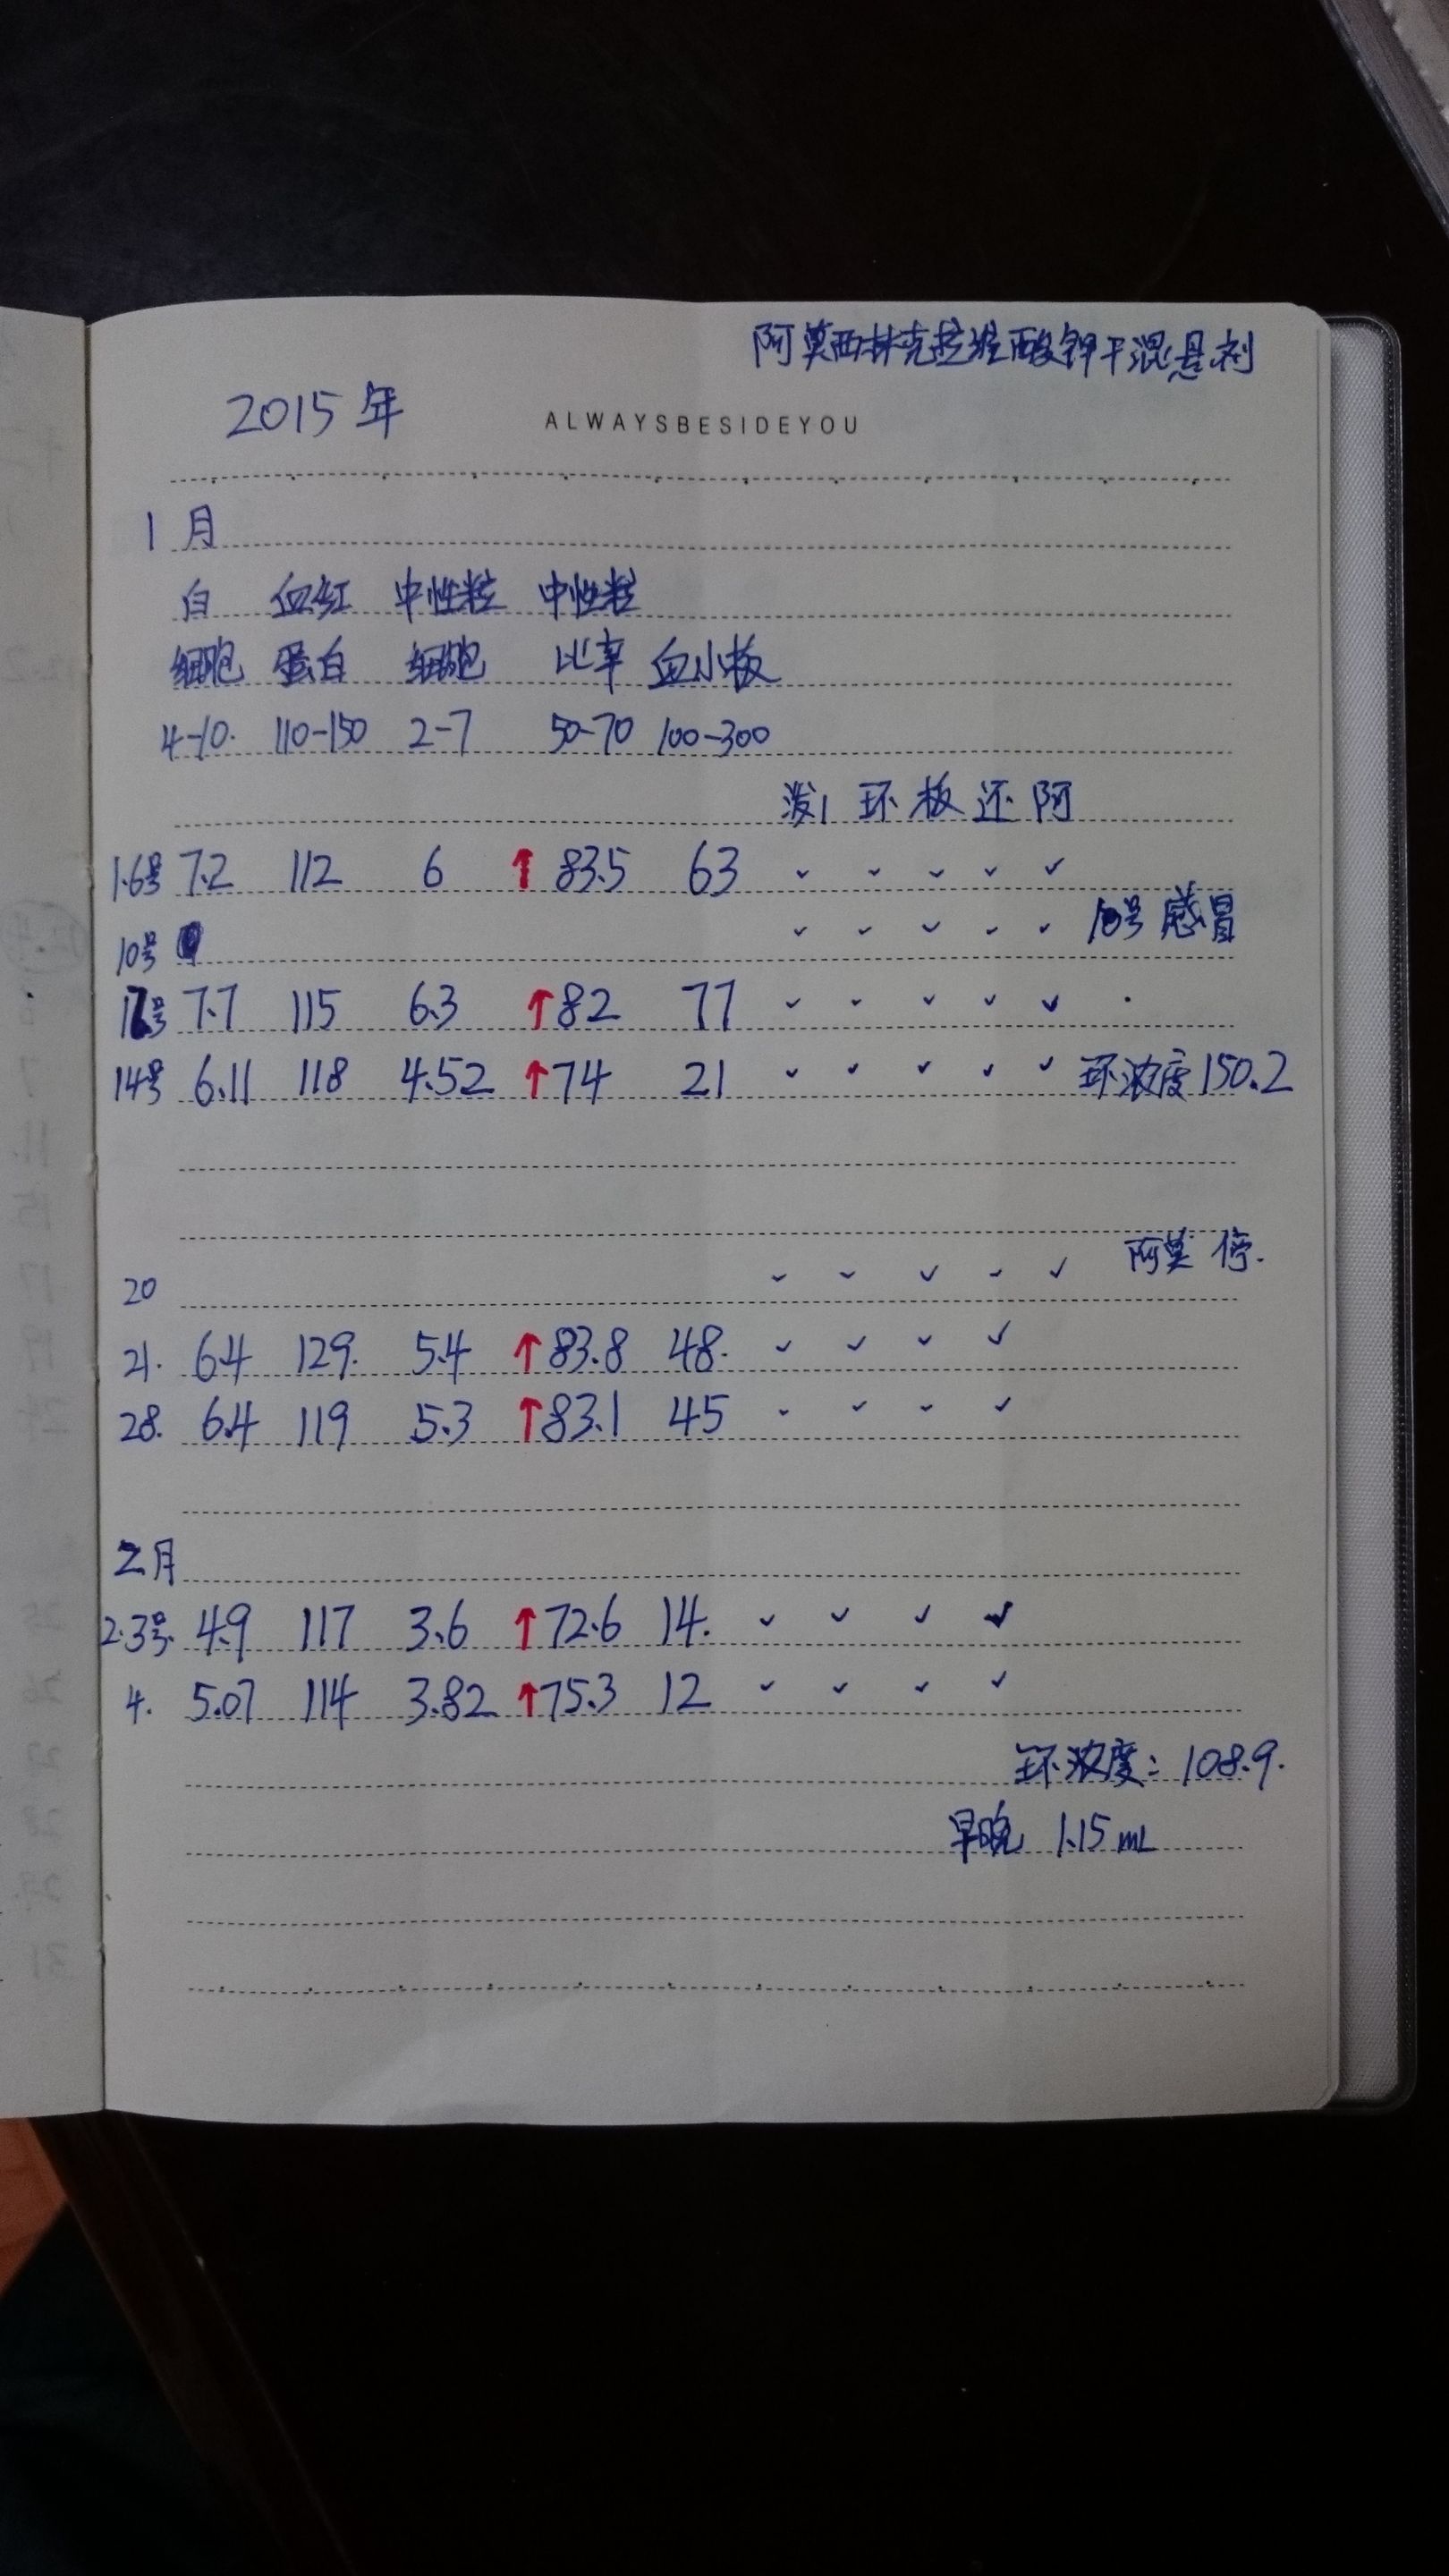 阿莫西林克拉维酸钾干混悬剂
2015年
ALWAYSBESIDEYOU
1月
白 血红 中性粒 中性粒
细胞 蛋白 细胞 比率 血小板
4-10. 110-150 2-7 50-70 100-300
泼1 环 板 还 阿
1.6号 7.2 112 6 ↑ 83.5 63 ✓ ✓ ✓ ✓ ✓
10号 ✓ ✓ ✓ ✓ ✓ 10号 感冒
12号 7.7 115 6.3 ↑82 77 ✓ ✓ ✓ ✓ ✓
14号 6.11 118 4.52 ↑74 21 ✓ ✓ ✓ ✓ ✓ 环浓度150.2
20 ✓ ✓ ✓ ✓ ✓ 阿莫 停.
21. 6.4 129. 5.4 ↑83.8 48. ✓ ✓ ✓ ✓
28. 6.4 119 5.3 ↑83.1 45 ✓ ✓ ✓ ✓
2月
2.3号. 4.9 117 3.6 ↑72.6 14. ✓ ✓ ✓ ✓
4. 5.07 114 3.82 ↑75.3 12 ✓ ✓ ✓ ✓
环浓度: 108.9.
早晚 1.15mL